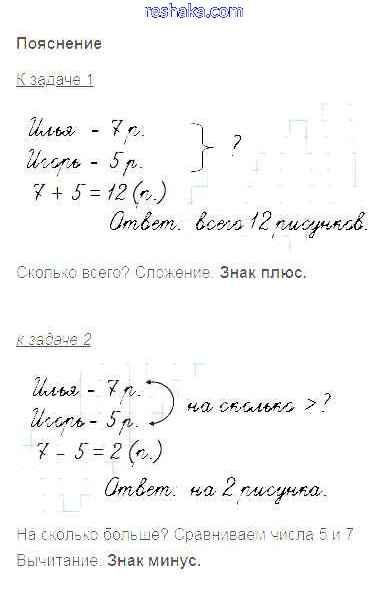 reshaka.com
Пояснение
К задаче 1
Илья - 7 р.
Игорь - 5 р.
?
7 + 5 = 12 (р.)
Ответ: всего 12 рисунков.
Сколько всего? Сложение. Знак плюс.
к задаче 2
Илья - 7 р.
Игорь - 5 р.
на сколько > ?
7 - 5 = 2 (р.)
Ответ: на 2 рисунка.
На сколько больше? Сравниваем числа 5 и 7
Вычитание. Знак минус.